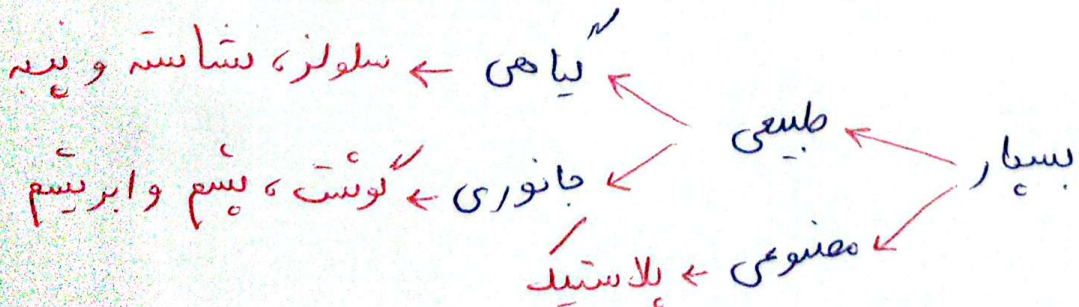 بسپار
طبیعی
گیاهی ← سلولز، نشاسته و پنبه
جانوری ← گوشت، پشم و ابریشم
مصنوعی ← پلاستیک